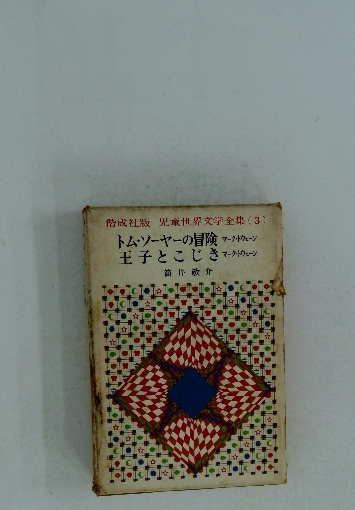 偕成社版 児童世界文学全集(3)
トム・ソーヤーの冒険 マーク・トウェーン
王子とこじき マーク・トウェーン
筒井敬介